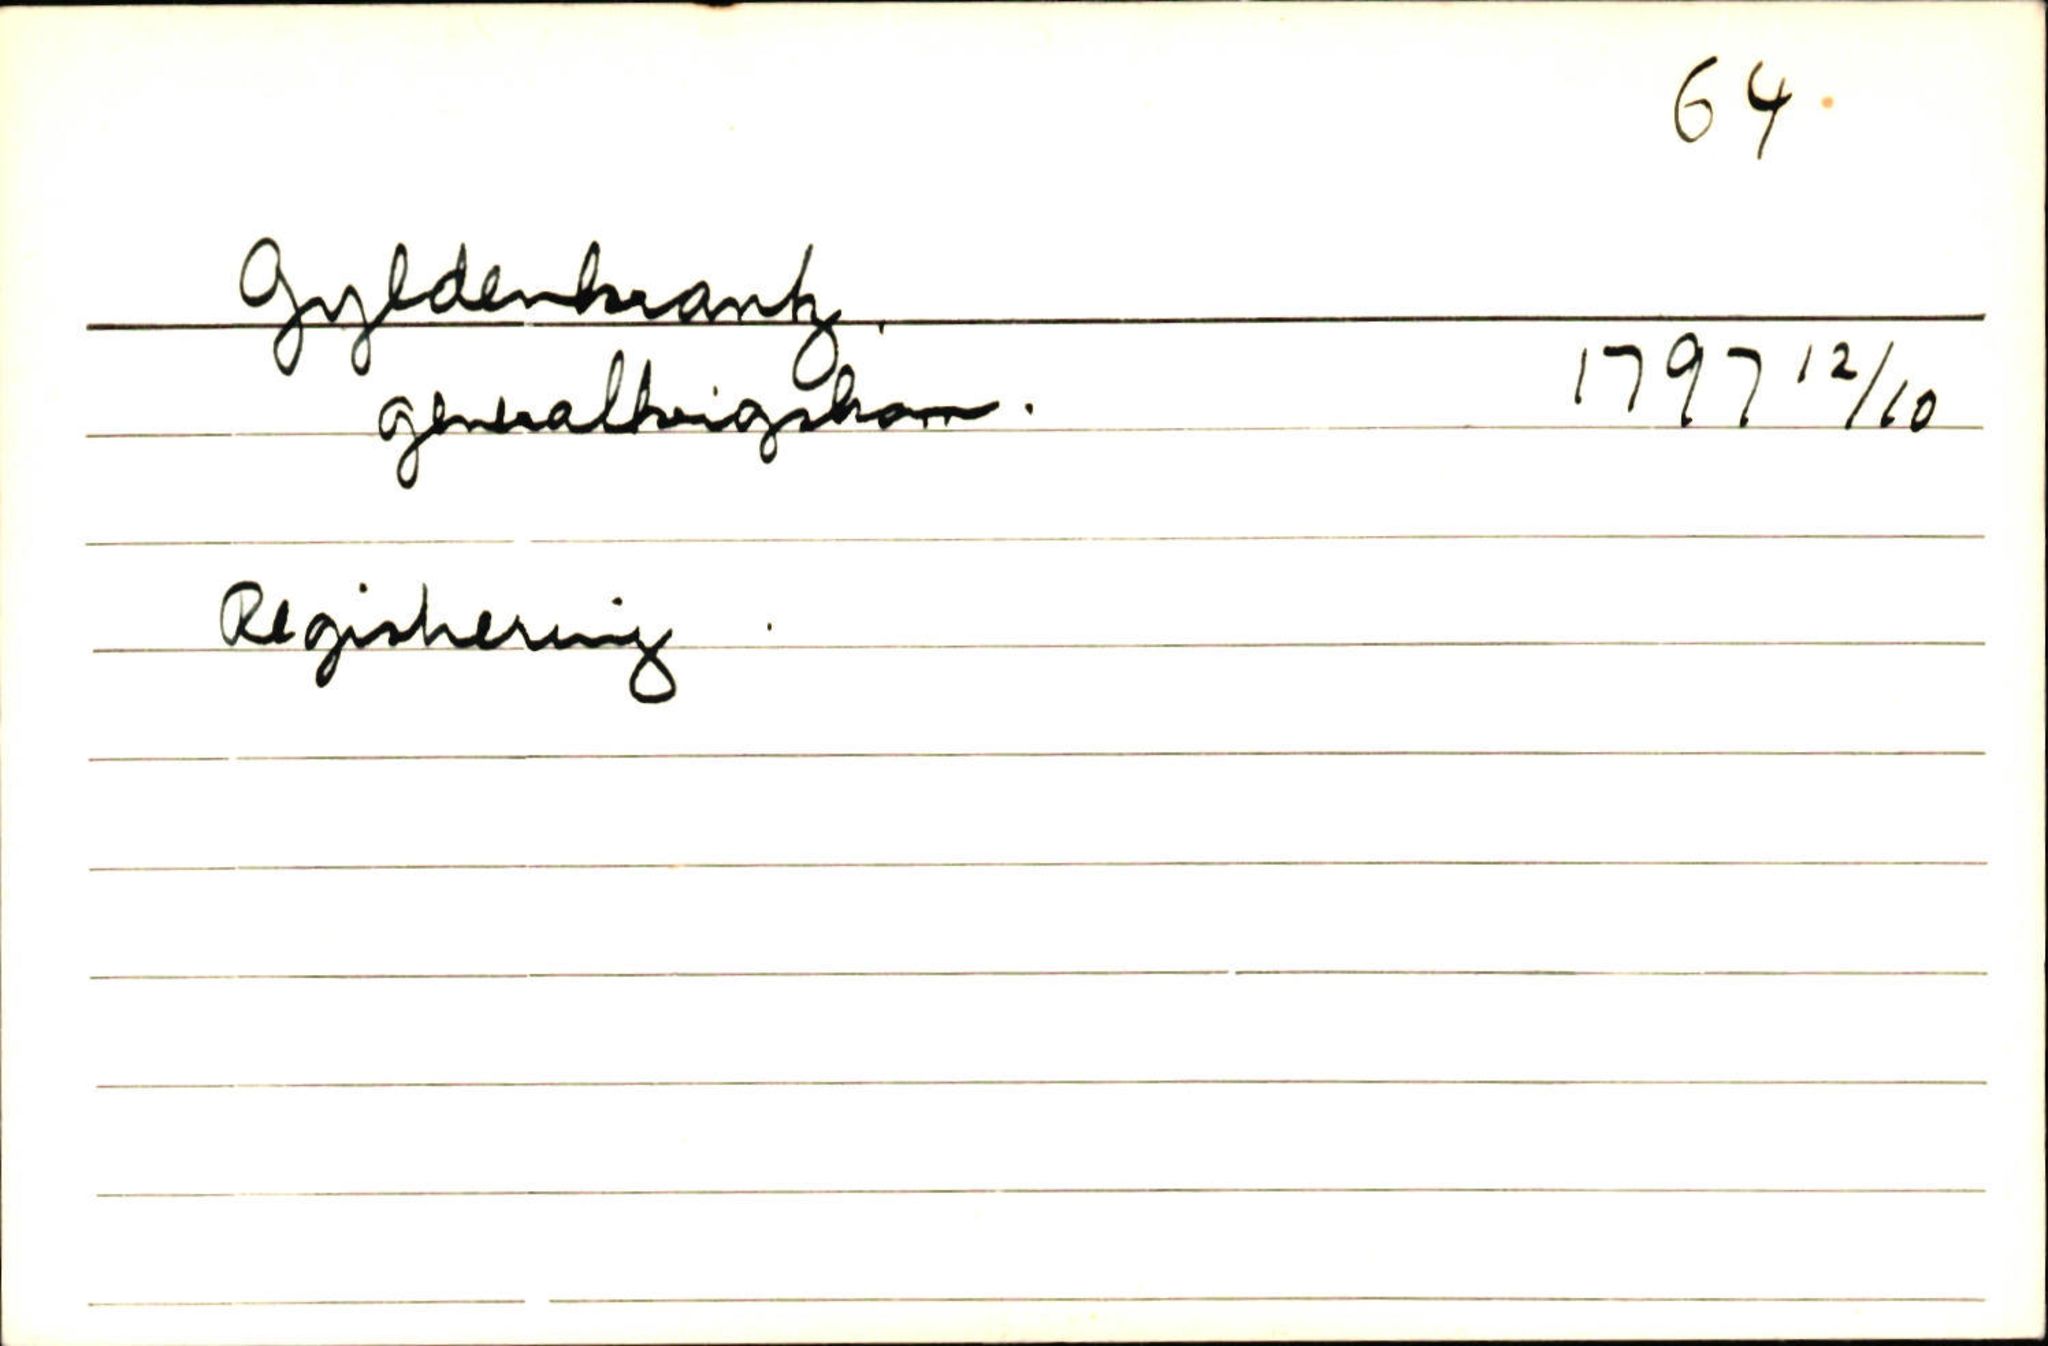 64.
Gyldenkrantz.
generalkrigskom. 1797 12/10
Registrering.